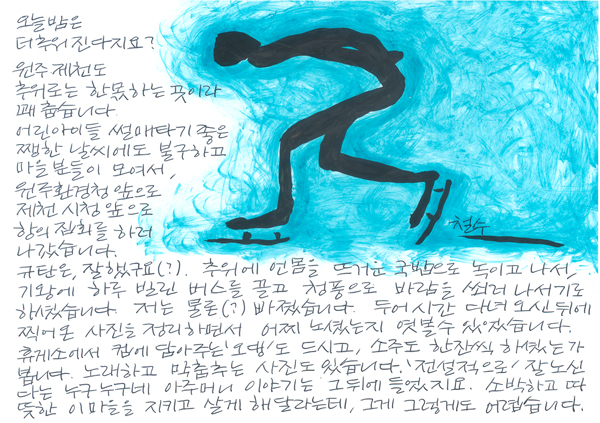 오늘밤은
더 추워 진다지요?
원주 제천도
추위로는 한몫하는 곳이라
꽤 춥습니다.
어린아이들 썰매타기 좋은
쨍한 날씨에도 불구하고
마을분들이 모여서,
원주환경청 앞으로
제천 시청 앞으로
항의 집회를 하러
나갔습니다.
규탄은, 잘 했구요(?). 추위에 언몸을 뜨거운 국밥으로 녹이고 나서,
기왕에 하루 빌린 버스를 끌고 청풍으로 바람을 쐬러 나서기로
하셨습니다. 저는 물론(?) 빠졌습니다. 두어시간 다녀 오신 뒤에
찍어온 사진을 정리하면서 어찌 노셨는지 엿볼수 있었습니다.
휴게소에서 컵에 담아주는 '오뎅'도 드시고, 소주도 한잔씩 하셨는가
봅니다. 노래하고 막춤추는 사진도 있습니다. '전설적으로' 잘 노신
다는 누구누구네 아주머니 이야기는 그 뒤에 들었지요. 소박하고 따
뜻한 이 마을을 지키고 살게 해달라는데, 그게 그렇게도 어렵습니다.
철수